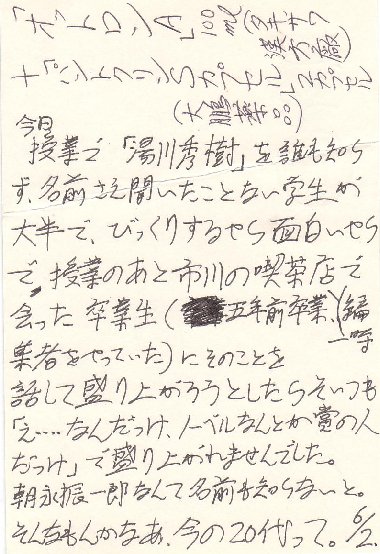 「オットロンA」100ml(タキザワ漢方廠)
+「パントクリンSカプセル」2カプセル
(大鵬薬品)
今日
授業で「湯川秀樹」を誰も知ら
ず、名前さえ聞いたことない学生が
大半で、びっくりするやら面白いやら
で、授業のあと市川の喫茶店で
会った卒業生(五年前卒業、一時編
集者をやっていた)にそのことを
話して盛り上がろうとしたらそいつも
「え……なんだっけ、ノーベルなんとか賞の人
だっけ」で盛り上がれませんでした。
朝永振一郎なんて名前も知らないと。
そんなもんかなあ、今の20代って。6/2